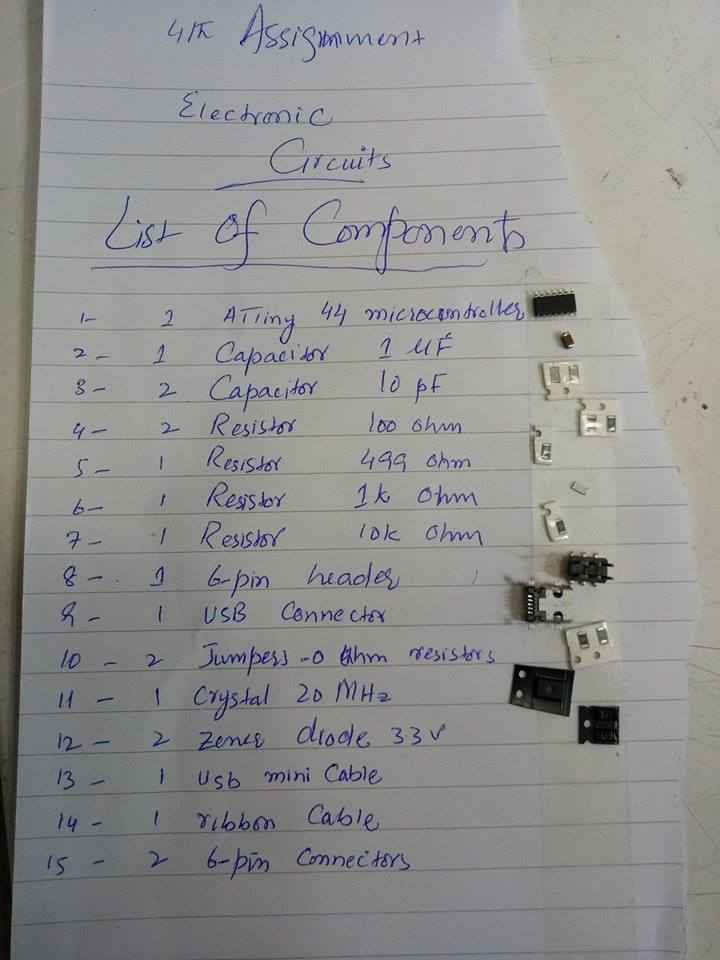 4th Assignment
Electronic
Circuits
List of Components
1- 1 ATTiny 44 microcontroller
2- 1 Capacitor 1 uF
3- 2 Capacitor 10 pF
4- 2 Resistor 100 ohm
5- 1 Resistor 499 ohm
6- 1 Resistor 1k ohm
7- 1 Resistor 10k ohm
8- 1 6-pin header
9- 1 USB Connector
10- 2 Jumpers -0 ohm resistors
11- 1 Crystal 20 MHz
12- 2 Zener diode 33v
13- 1 Usb mini Cable
14- 1 ribbon Cable
15- 2 6-pin Connectors